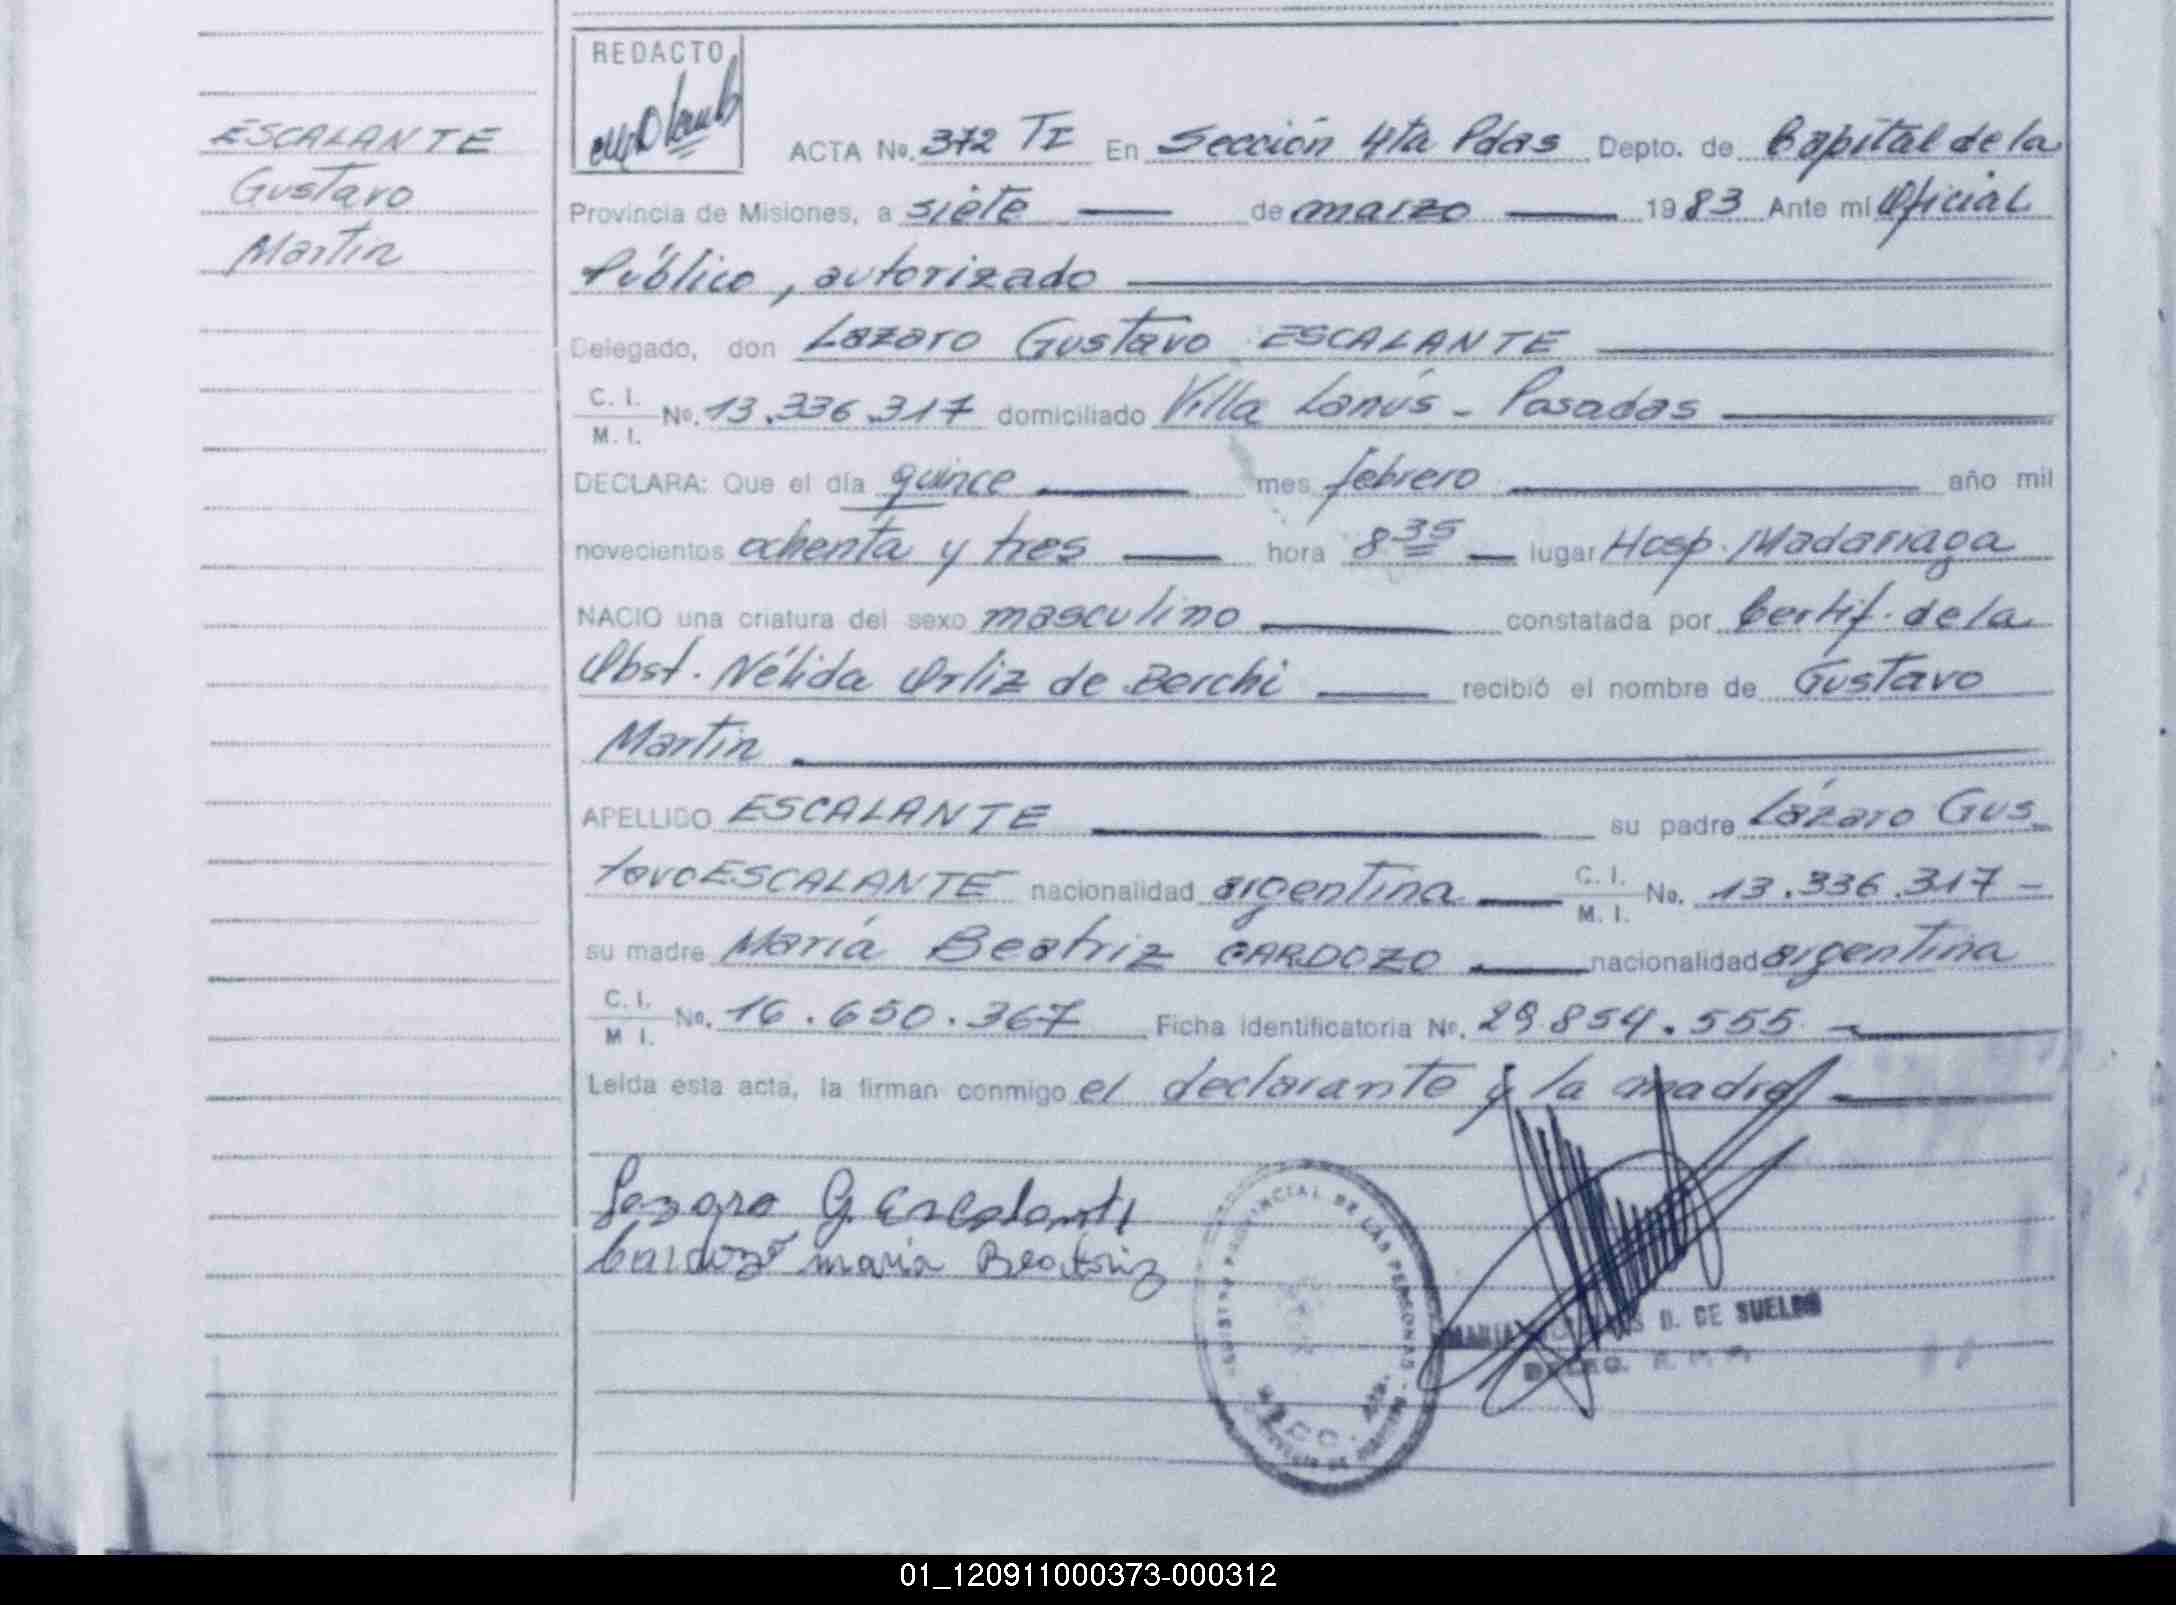 ESCALANTE
Gustavo
Martin
REDACTO
ACTA No. 372 TI En Sección 4ta Pdas Depto. de Capital de la
Provincia de Misiones, a siete de marzo 1983 Ante mí Oficial
Público, autorizado
Delegado, don Lazaro Gustavo ESCALANTE
C. I.
M. I.
No. 13.336.317 domiciliado Villa Lanús - Posadas
DECLARA: Que el día quince mes febrero año mil
novecientos ochenta y tres hora 8 35 lugar Hosp. Madariaga
NACIO una criatura del sexo masculino constatada por Certif. de la
Obst. Nélida Ortiz de Berchi recibió el nombre de Gustavo
Martin
APELLIDO ESCALANTE su padre Lázaro Gus
tavo ESCALANTE nacionalidad argentina C. I. M. I. No. 13.336.317 -
su madre María Beatriz CARDOZO nacionalidad argentina
C. I.
M I.
No. 16.650.367 Ficha identificatoria No. 29.854.555
Leída esta acta, la firman conmigo el declarante y la madre
Lazaro G. Escalante
Cardozo maria Beatriz
PROVINCIAL DE LAS PERSONAS
MARIA D. DE SUELDO
01_120911000373-000312